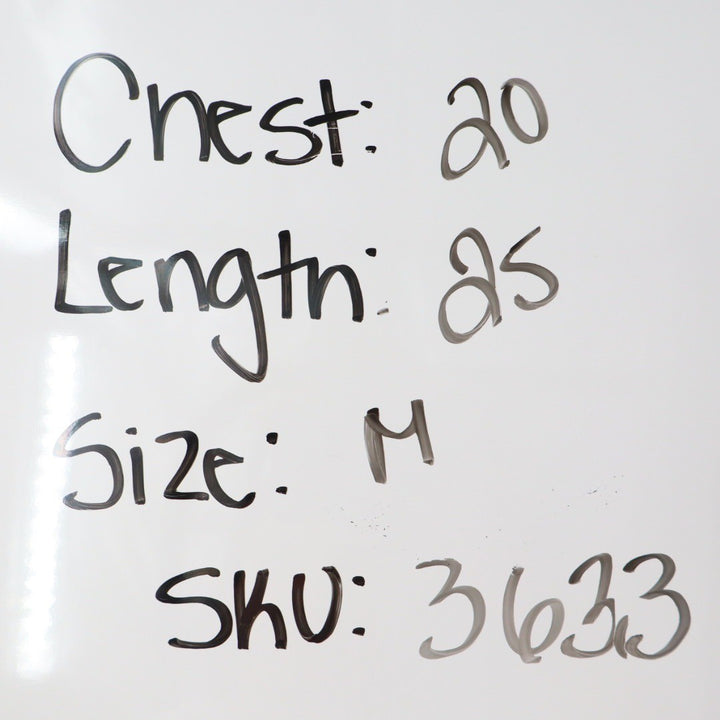 Chest: 20
Length: 25
Size: M
SKU: 3633